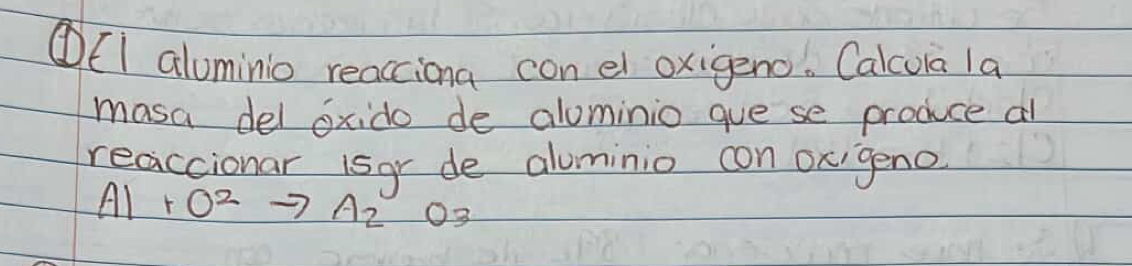 ① El aluminio reacciona con el oxigeno. Calcula la
masa del óxido de aluminio que se produce al
reaccionar 15gr de aluminio con oxigeno.
Al + O² → A₂ O₃